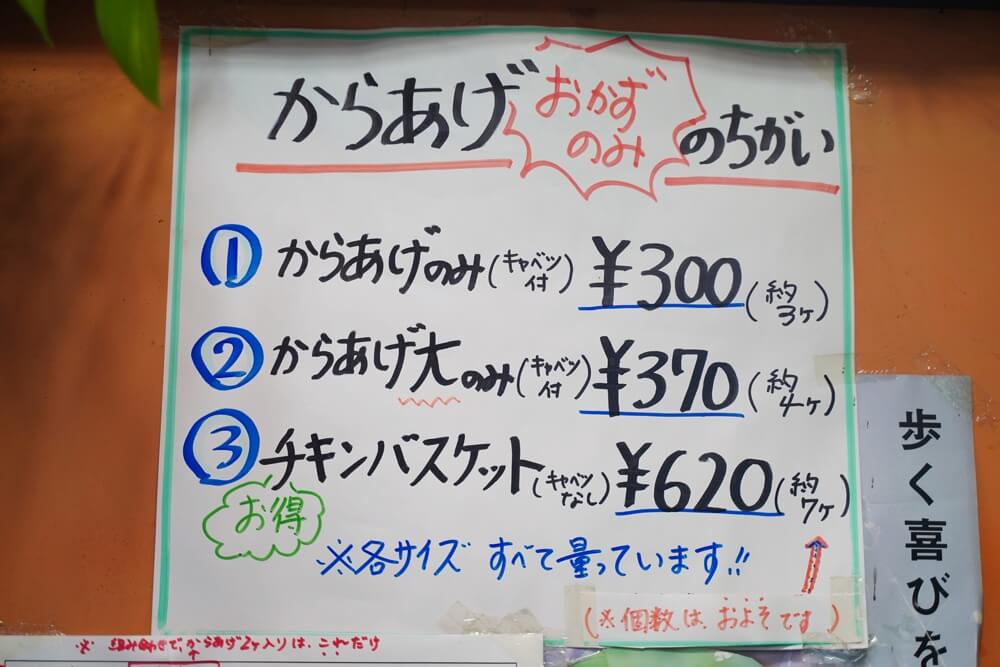 からあげ おかずのみ のちがい
① からあげのみ(キャベツ付) ¥300(約3ヶ)
② からあげ大のみ(キャベツ付) ¥370(約4ヶ)
③ チキンバスケット(キャベツなし) ¥620(約7ヶ)
お得
※各サイズ すべて量っています!!
(※個数は、およそです)
※ 組み合わせで、からあげ2ヶ入りは、これだけ
歩く喜びを